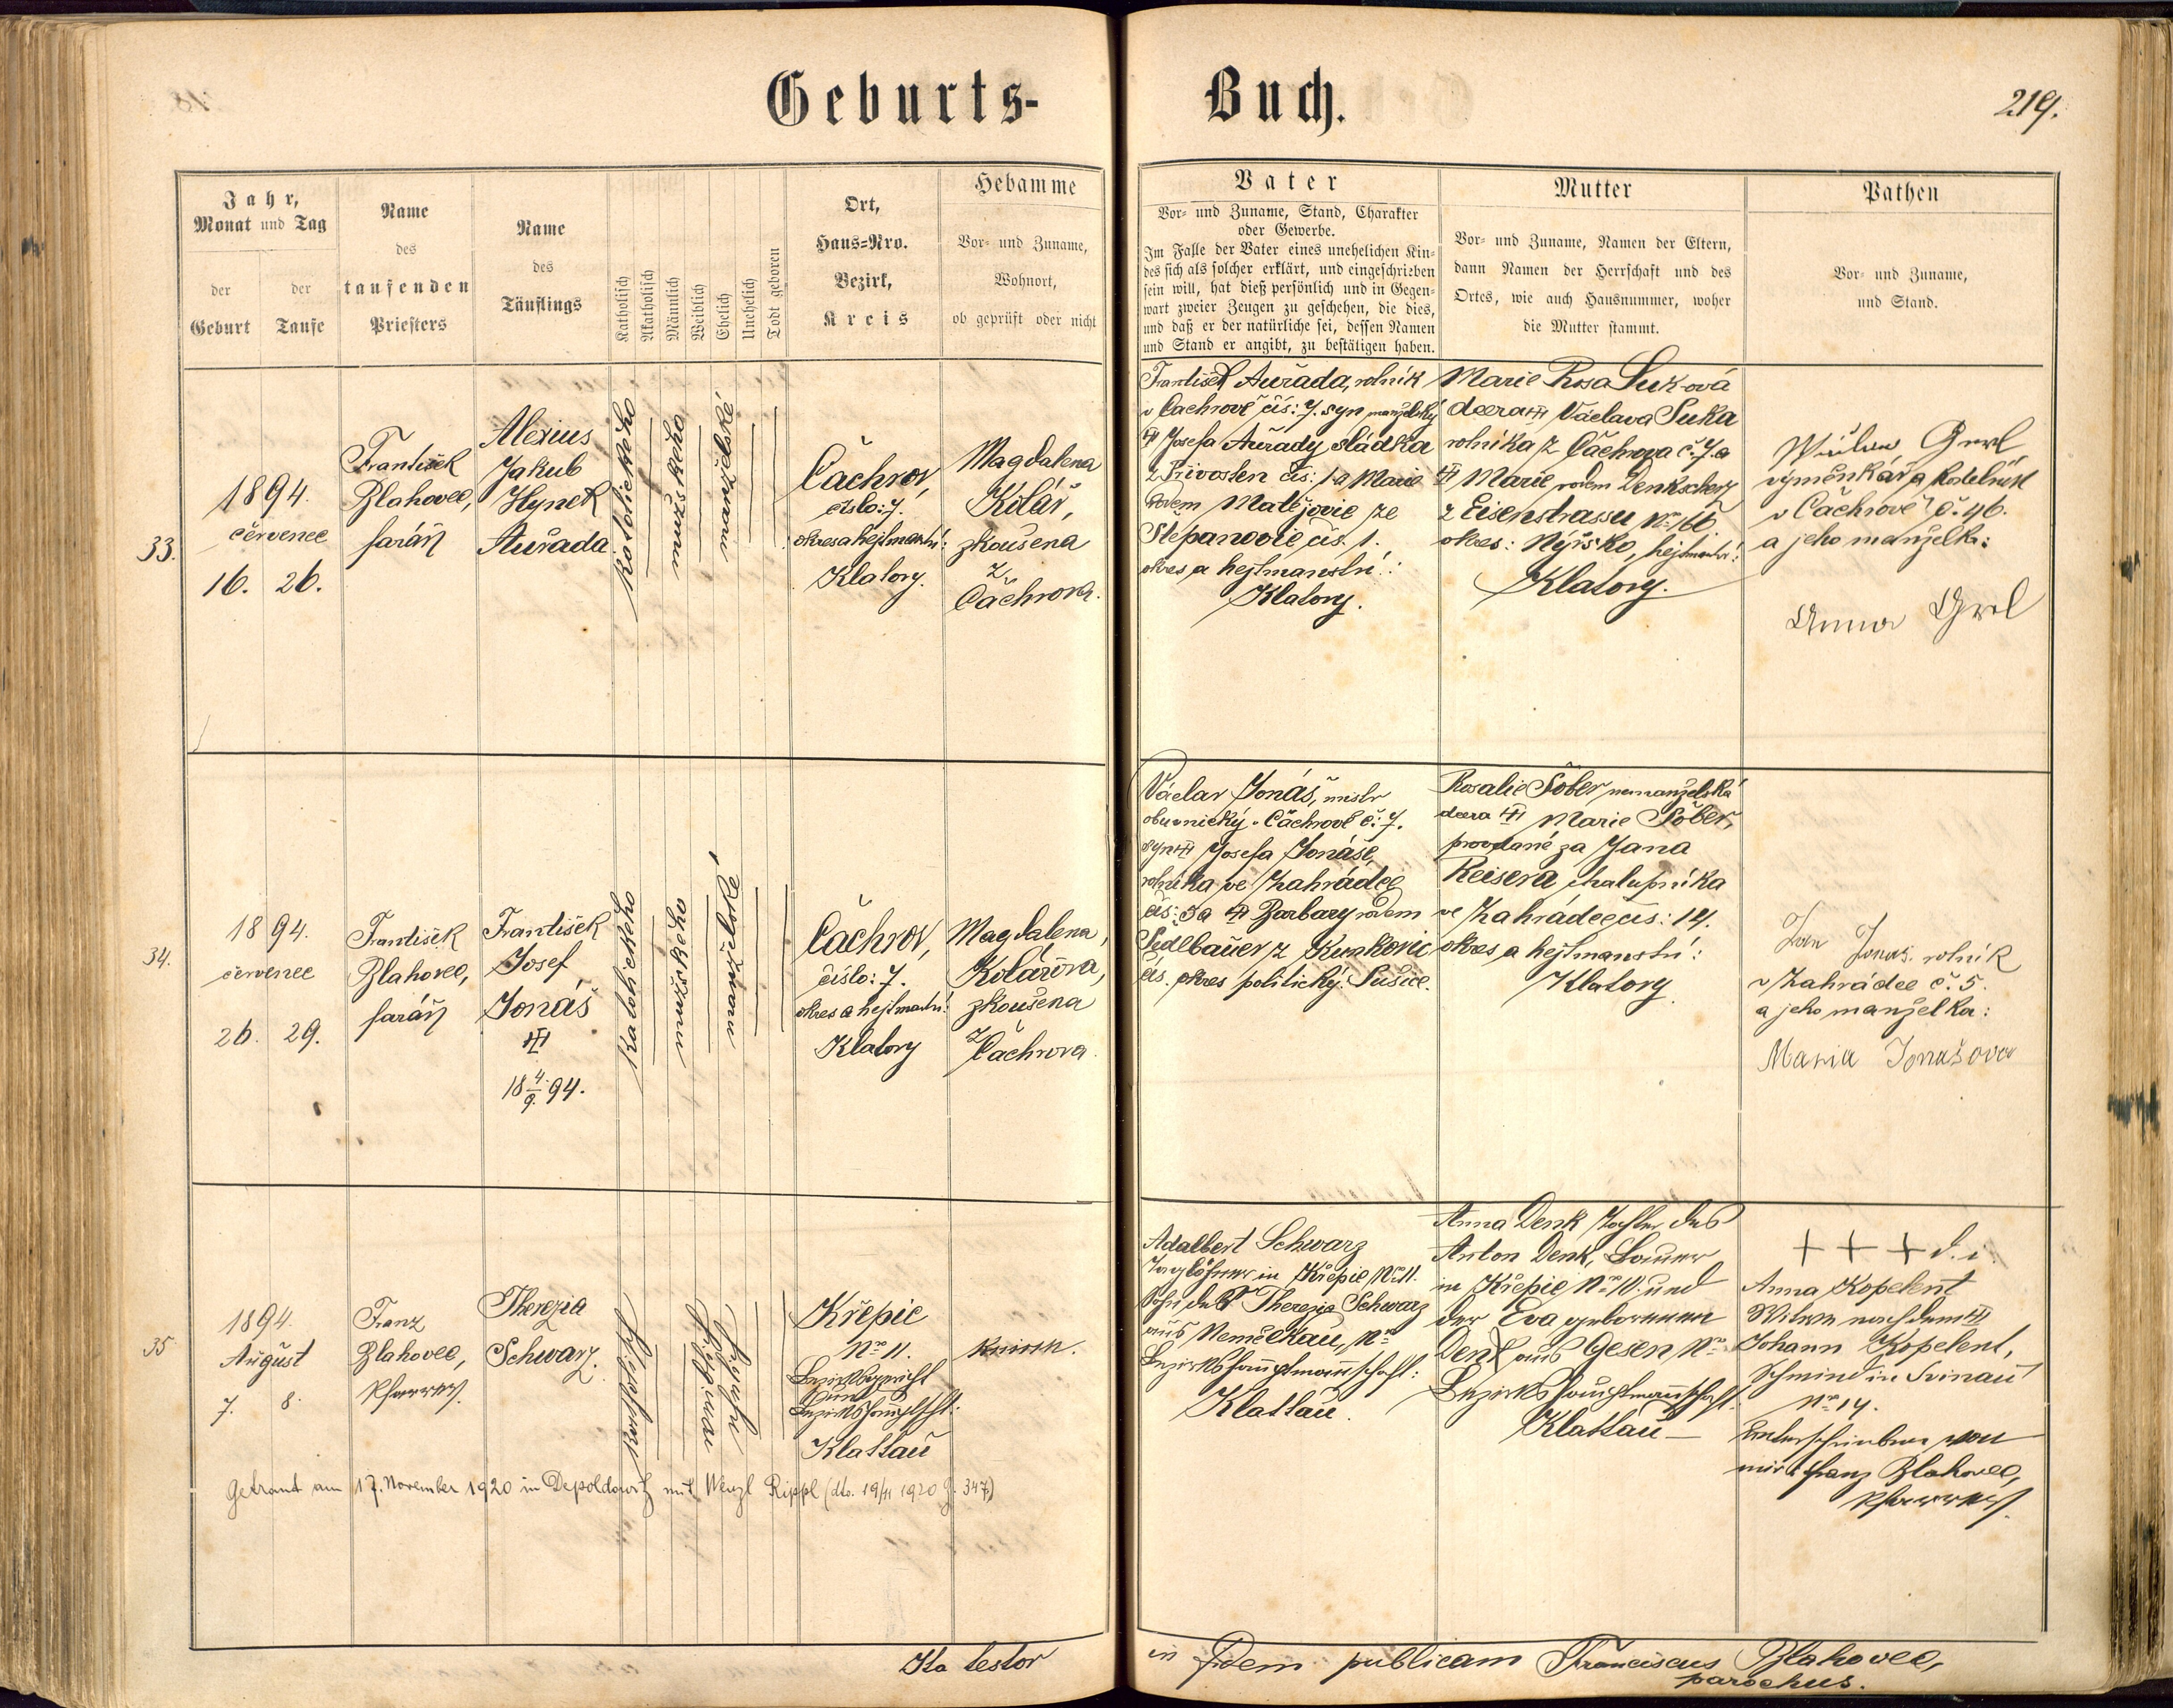 Geburts-
Buch.
219.
Jahr,
Monat und Tag
der Geburt
der Taufe
Name
des
taufenden
Priesters
Name
des
Täuflings
Katholisch
Akatholisch
Männlich
Weiblich
Ehelich
Unehelich
Todt geboren
Ort,
Haus-Nro.
Bezirk,
Kreis
Hebamme
Vor- und Zuname,
Wohnort,
ob geprüft oder nicht
Vater
Vor- und Zuname, Stand, Charakter
oder Gewerbe.
Im Falle der Vater eines unehelichen Kin-
des sich als solcher erklärt, und eingeschrieben
sein will, hat dieß persönlich und in Gegen-
wart zweier Zeugen zu geschehen, die dies,
und daß er der natürliche sei, dessen Namen
und Stand er angibt, zu bestätigen haben.
Mutter
Vor- und Zuname, Namen der Eltern,
dann Namen der Herrschaft und des
Ortes, wie auch Hausnummer, woher
die Mutter stammt.
Pathen
Vor- und Zuname,
und Stand.
33.
1894.
červenec
16. 26.
František
Blahovec,
farář
Alexius
Jakub
Hynek
Auřada
katolického
mužského
manželské
Čachrov,
číslo: 7.
okres a hejtmanství:
Klatovy.
Magdalena
Kolář,
zkoušena
z
Čachrova.
František Auřada, rolník
v Čachrově čís: 7. syn manželský
Josefa Auřady, sládka
čís: 1 a Marie
rodem Matějovic ze
Štěpanovic čís. 1.
okres a hejtmanství:
Klatovy.
Marie Rosa Suková
dcera Václava Suka
rolníka z Čachrova č. 7. a
Marie rodem Denkscherz
z Eisenstrassu No 166
okres: Nýrsko, hejtmanství:
Klatovy.
výměnkář a kostelník
v Čachrově č. 46.
a jeho manželka:
Anna Grel
34.
1894.
červenec
26. 29.
František
Blahovec,
farář
František
Josef
Jonáš
18 4/9. 94.
katolického
mužského
manželské
Čachrov,
číslo: 7.
okres a hejtmanství:
Klatovy
Magdalena
Kolářova,
zkoušena
z Čachrova.
Václav Jonáš, mistr
obuvnický v Čachrově č. 7.
syn Josefa Jonáše,
rolníka ve Zahrádce
čís: 5 a Barbary rodem
Sedlbauer z Kunkovic
čís. okres politický: Sušice.
Rosalie Šober nemanželská
dcera Marie Šober,
provdané za Jana
Reisera chalupníka
ve Zahrádce čís: 14.
okres a hejtmanství:
Klatovy
Jan Jonáš. rolník
v Zahrádce č. 5.
a jeho manželka:
Maria Jonašova
35
1894.
August
7. 8.
Franz
Blahovec,
Pfarrer
Therezia
Schwarz.
Katholisch
Weiblich
Ehelich
Křepic
No 11.
Bezirksgericht
und
Bezirkshauptscht:
Klattau
Keine.
Adalbert Schwarz
Taglöhner in Křepic, No 11.
Sohn der Therezia Schwarz
aus Nemělkau, No
Bezirkshauptmannschaft:
Klattau.
Anna Denk Tochter des
Anton Denk, Bauer
in Křepic No 10. und
der Eva geborenen
Denk aus Gesen No
Bezirkshauptmannschaft.
Klattau
+ + + d. i.
Anna Kopelent
Witwe nach dem
Johann Kopelent,
Schmied in Svinau
No 14.
Unterschrieben von
mir Franz Blahovec,
Pfarrer.
Getraut am 17. November 1920 in Depoldowitz mit Wenzl Rippl (dto. 19/11 1920 J. 347)
Ita testor
in fidem publicam Franciscus Blahovec,
parochus.